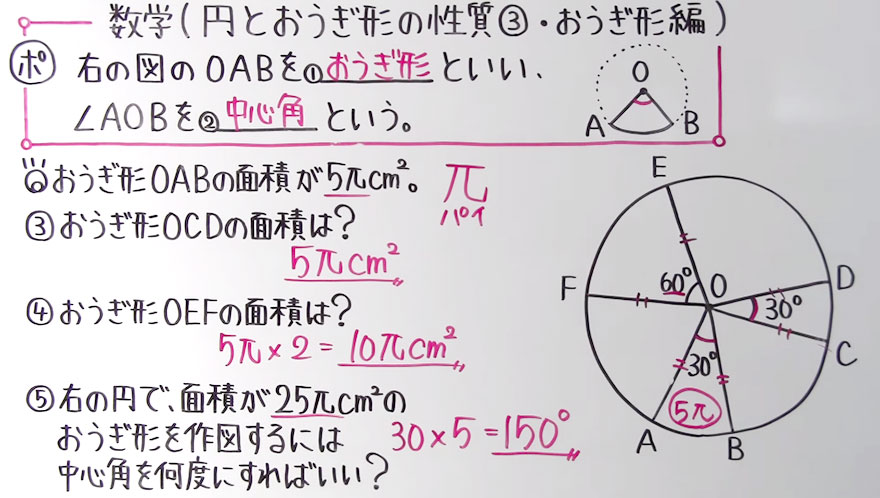 数学(円とおうぎ形の性質③・おうぎ形編)
ポ 右の図のOABを①おうぎ形といい、
∠AOBを②中心角という。
O
A B
おうぎ形OABの面積が5πcm²。 π
パイ
③おうぎ形OCDの面積は?
5πcm²
④おうぎ形OEFの面積は?
5π×2=10πcm²
⑤右の円で、面積が25πcm²の
おうぎ形を作図するには 30×5=150°
中心角を何度にすればいい?
E
F 60° O D
30°
C
30°
5π
A B